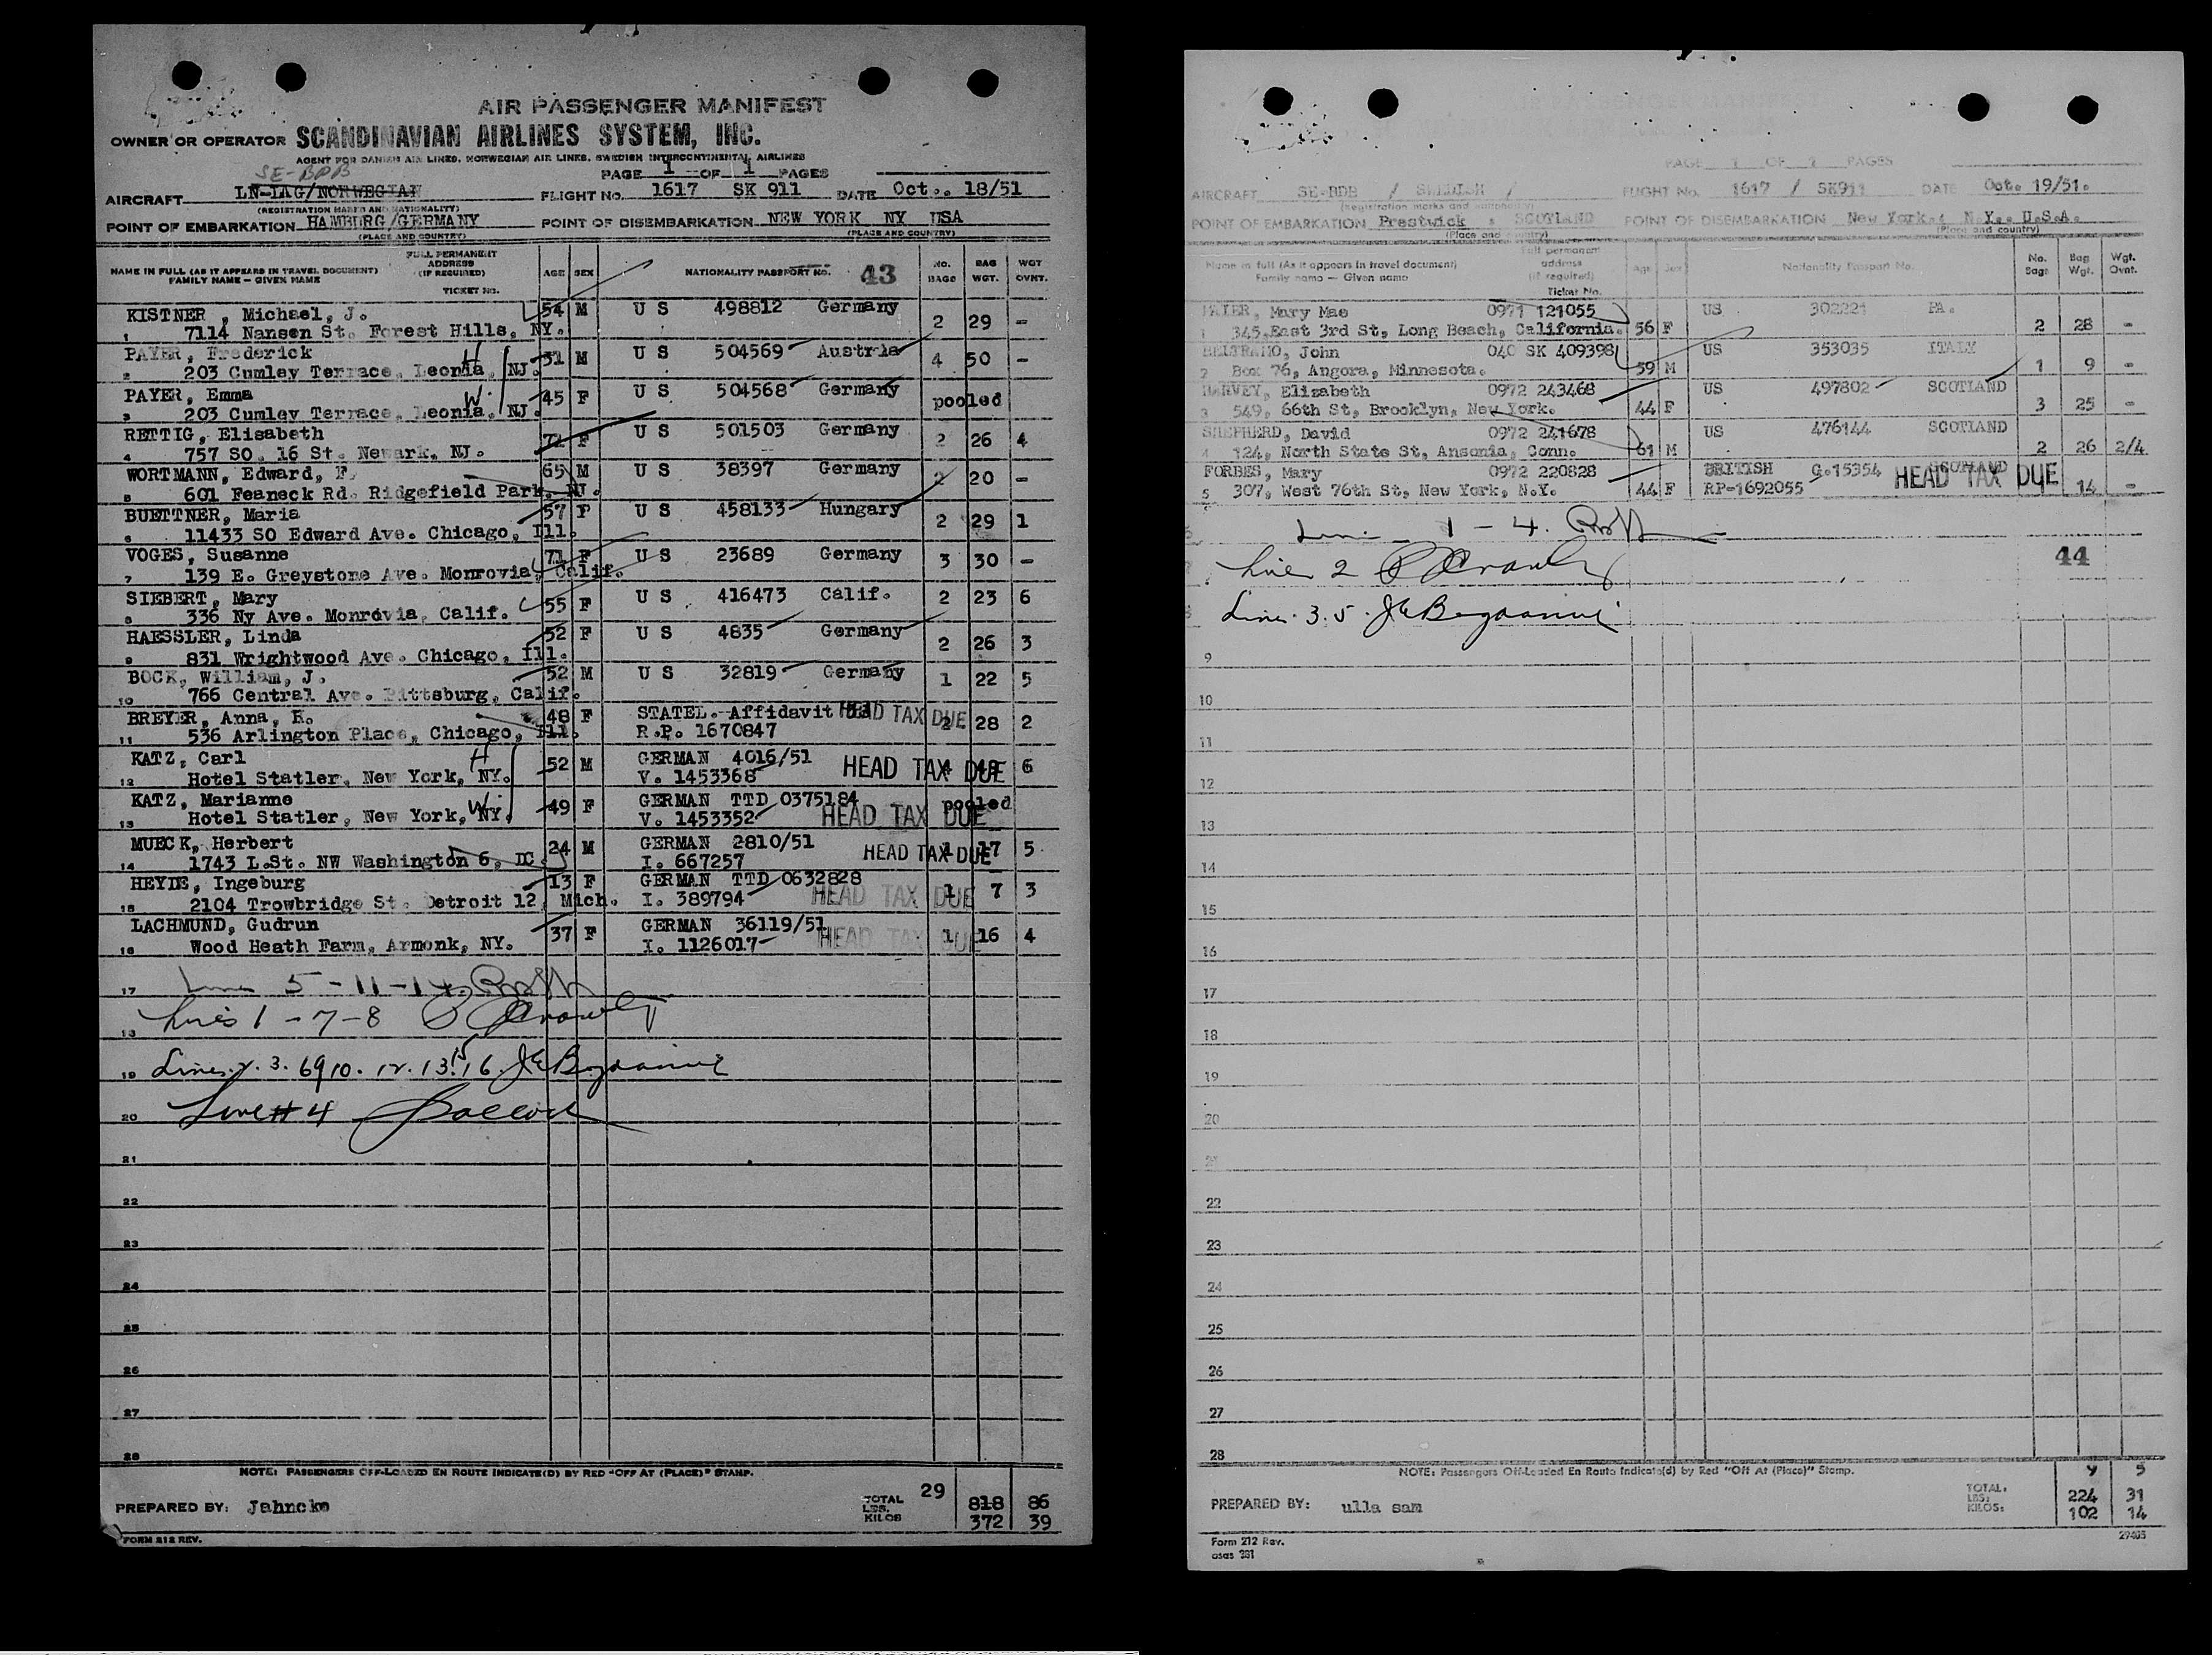 AIR PASSENGER MANIFEST
OWNER OR OPERATOR SCANDINAVIAN AIRLINES SYSTEM, INC.
AGENT FOR DANISH AIR LINES, NORWEGIAN AIR LINES, SWEDISH INTERCONTINENTAL AIRLINES
PAGE 1 OF 1 PAGES
SE-BDB
AIRCRAFT LN-LAG/NORWEGIAN FLIGHT NO. 1617 SK 911 DATE Oct.. 18/51
(REGISTRATION MARKS AND NATIONALITY)
POINT OF EMBARKATION HAMBURG/GERMANY POINT OF DISEMBARKATION NEW YORK NY USA
(PLACE AND COUNTRY) (PLACE AND COUNTRY)
NAME IN FULL (AS IT APPEARS IN TRAVEL DOCUMENT) FAMILY NAME — GIVEN NAME FULL PERMANENT ADDRESS (IF REQUIRED) TICKET NO. AGE SEX NATIONALITY PASSPORT NO. 43 NO. BAGS BAG WGT. WGT OVNT.
KISTNER , Michael, J. 54 M U S 498812 Germany
1 7114 Nansen St. Forest Hills, NY. 2 29 -
PAYER, Frederick H 51 M U S 504569 Austria 4 50 -
2 203 Cumley Terrace, Leonia, NJ.
PAYER, Emma W. 45 F U S 504568 Germany pooled
3 203 Cumley Terrace, Leonia, NJ.
RETTIG, Elisabeth 72 F U S 501503 Germany 2 26 4
4 757 SO. 16 St. Newark, NJ.
WORTMANN, Edward, F. 65 M U S 38397 Germany 2 20 -
5 601 Feaneck Rd. Ridgefield Park, NJ.
BUETTNER, Maria 57 F U S 458133 Hungary 2 29 1
6 11433 SO Edward Ave. Chicago, Ill.
VOGES, Susanne 71 F U S 23689 Germany 3 30 -
7 139 E. Greystone Ave. Monrovia, Calif.
SIEBERT, Mary 55 F U S 416473 Calif. 2 23 6
8 336 Ny Ave. Monrovia, Calif.
HAESSLER, Linda 52 F U S 4835 Germany 2 26 3
9 831 Wrightwood Ave. Chicago, Ill.
BOCK, William, J. 52 M U S 32819 Germany 1 22 5
10 766 Central Ave. Pittsburg, Calif.
BREYER, Anna, R. 48 F STATEL. Affidavit HEAD TAX DUE 2 28 2
11 536 Arlington Place, Chicago, Ill. R.P. 1670847
KATZ, Carl H 52 M GERMAN 4016/51 HEAD TAX DUE 6
12 Hotel Statler, New York, NY. V. 1453368
KATZ, Marianne W. 49 F GERMAN TTD 0375184 pooled
13 Hotel Statler, New York, NY. V. 1453352 HEAD TAX DUE
MUECK, Herbert 24 M GERMAN 2810/51 HEAD TAX DUE 1 17 5
14 1743 L.St. NW Washington 6, DC. I. 667257
HEYDE, Ingeburg 13 F GERMAN TTD 0632828 HEAD TAX DUE 1 7 3
15 2104 Trowbridge St. Detroit 12, Mich. I. 389794
LACHMUND, Gudrun 37 F GERMAN 36119/51 HEAD TAX DUE 1 16 4
16 Wood Heath Farm, Armonk, NY. I. 1126017
17 Line 5 - 11 - 14
18 Lines 1 - 7 - 8
19 Lines. 2. 3. 6 9 10. 12. 13. 15 16.
20 Line # 4
21
22
23
24
25
26
27
28
NOTE: PASSENGERS OFF-LOADED EN ROUTE INDICATE(D) BY RED "OFF AT (PLACE)" STAMP.
PREPARED BY: Jahncke TOTAL 29
LBS. 818 86
KILOS 372 39
FORM 212 REV.
PAGE 1 OF 1 PAGES
AIRCRAFT SE-BDB / SWEDISH / FLIGHT No. 1617 / SK911 DATE Oct. 19/51.
(Registration marks and nationality)
POINT OF EMBARKATION Prestwick , SCOTLAND POINT OF DISEMBARKATION New York., N.Y. U.S.A.
(Place and country) (Place and country)
Name in full (As it appears in travel document) Family name — Given name Full permanent address (if required) Ticket No. Age Sex Nationality Passport No. No. Bags Bag Wgt. Wgt. Ovnt.
Mary Mae 0971 121055 US 302221 PA.
1 345, East 3rd St, Long Beach, California. 56 F 2 28 -
BELTRAMO, John 040 SK 409398 US 353035 ITALY
2 Box 76, Angora, Minnesota. 59 M 1 9 -
HARVEY, Elizabeth 0972 243468 US 497802 SCOTLAND
3 549, 66th St, Brooklyn, New York. 44 F 3 25 -
SHEPHERD, David 0972 241678 US 476144 SCOTLAND
4 124, North State St, Ansonia, Conn. 61 M 2 26 2/4
FORBES, Mary 0972 220828 BRITISH G.15354 SCOTLAND HEAD TAX DUE
5 307, West 76th St, New York, N.Y. 44 F RP-1692055 1 14 -
Line 1 - 4.
44
Line 2
Lines. 3. 5.
9
10
11
12
13
14
15
16
17
18
19
20
21
22
23
24
25
26
27
28
NOTE: Passengers Off-Loaded En Route Indicate(d) by Red "Off At (Place)" Stamp.
9 5
PREPARED BY: ulla sam TOTAL:
LBS: 224 31
KILOS: 102 14
Form 212 Rev.
osas 281
29405